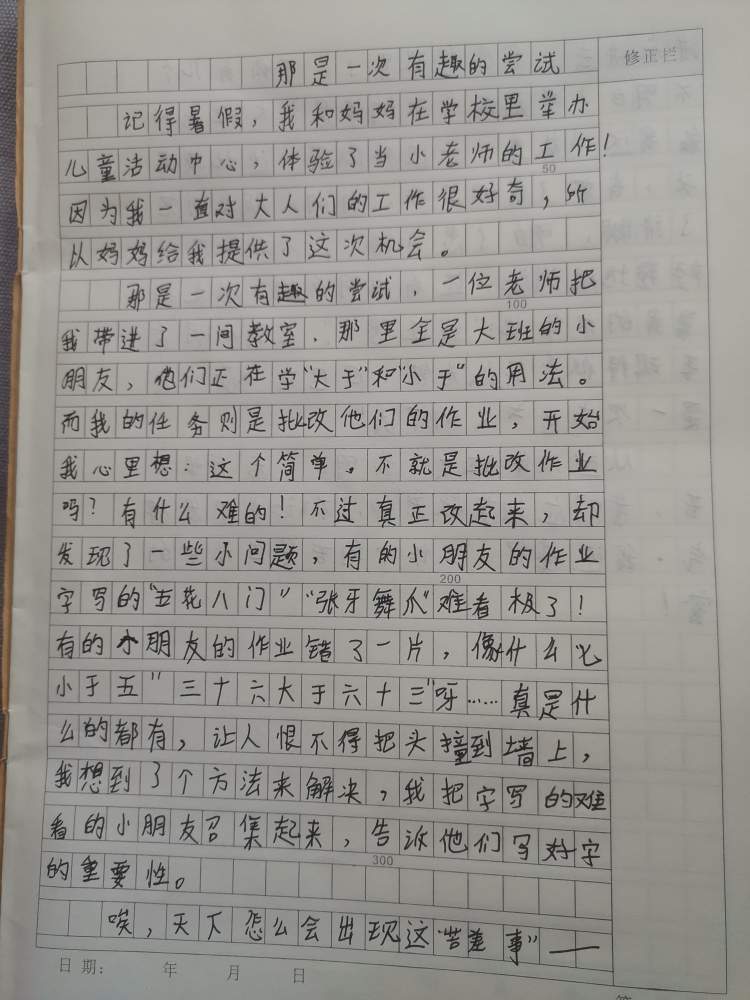 那是一次有趣的尝试
修正栏
记得暑假，我和妈妈在学校里举办
儿童活动中心，体验了当小老师的工作！
50
因为我一直对大人们的工作很好奇，所
以妈妈给我提供了这次机会。
那是一次有趣的尝试．一位老师把
100
我带进了一间教室．那里全是大班的小
朋友，他们正在学“大于”和“小于”的用法。
而我的任务则是批改他们的作业，开始
我心里想：这个简单。不就是批改作业
吗？有什么难的！不过真正改起来，却
发现了一些小问题，有的小朋友的作业
200
字写的“五花八门”“张牙舞爪”难看极了！
有的小朋友的作业错了一片，像什么“七
小于五”三十六大于六十三”呀……真是什
么的都有，让人恨不得把头撞到墙上，
我想到了个方法来解决，我把字写的难
看的小朋友召集起来，告诉他们写好字
300
的重要性。
唉，天下怎么会出现这“苦差事”——
日期： 年 月 日